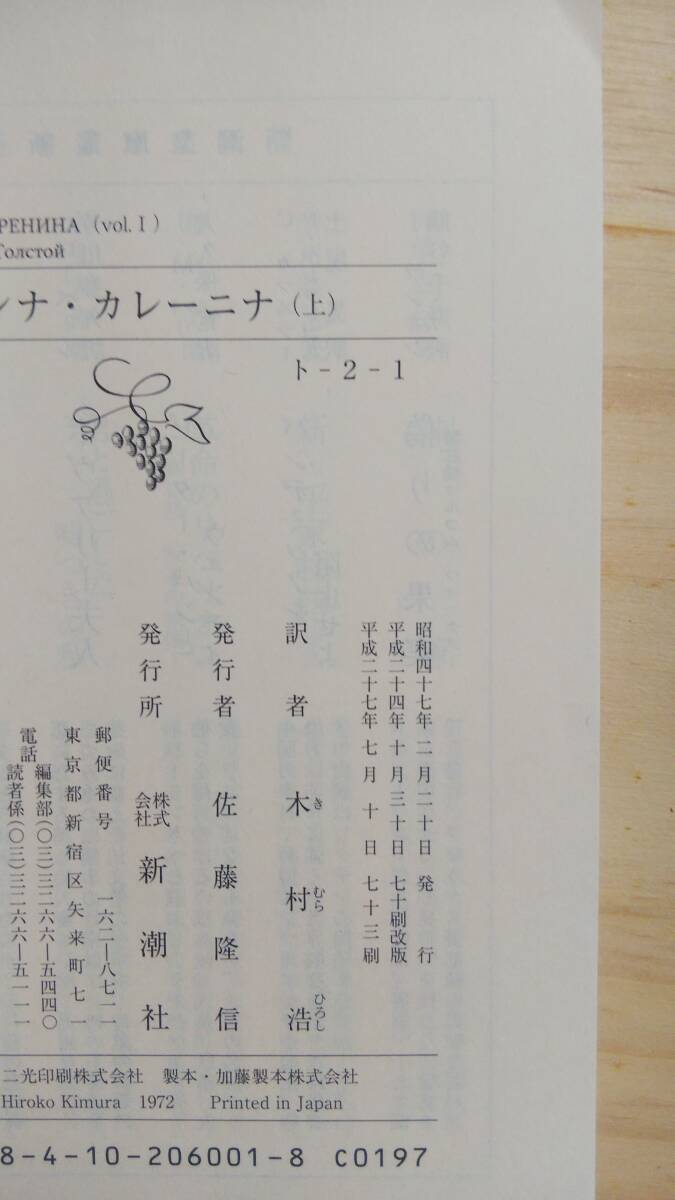 РЕНИНА (vol. I)
Толстой
ンナ・カレーニナ(上)
ト-2-1
昭和四十七年二月二十日発行
平成二十四年十月三十日七十刷改版
平成二十七年七月十日七十三刷
訳者 木村浩
き むら ひろし
発行者 佐藤隆信
発行所 株式会社 新潮社
郵便番号 一六二―八七一一
東京都新宿区矢来町七一
電話 編集部(〇三)三二六六―五四四〇
読者係(〇三)三二六六―五一一一
二光印刷株式会社 製本・加藤製本株式会社
Hiroko Kimura 1972 Printed in Japan
8-4-10-206001-8 C0197